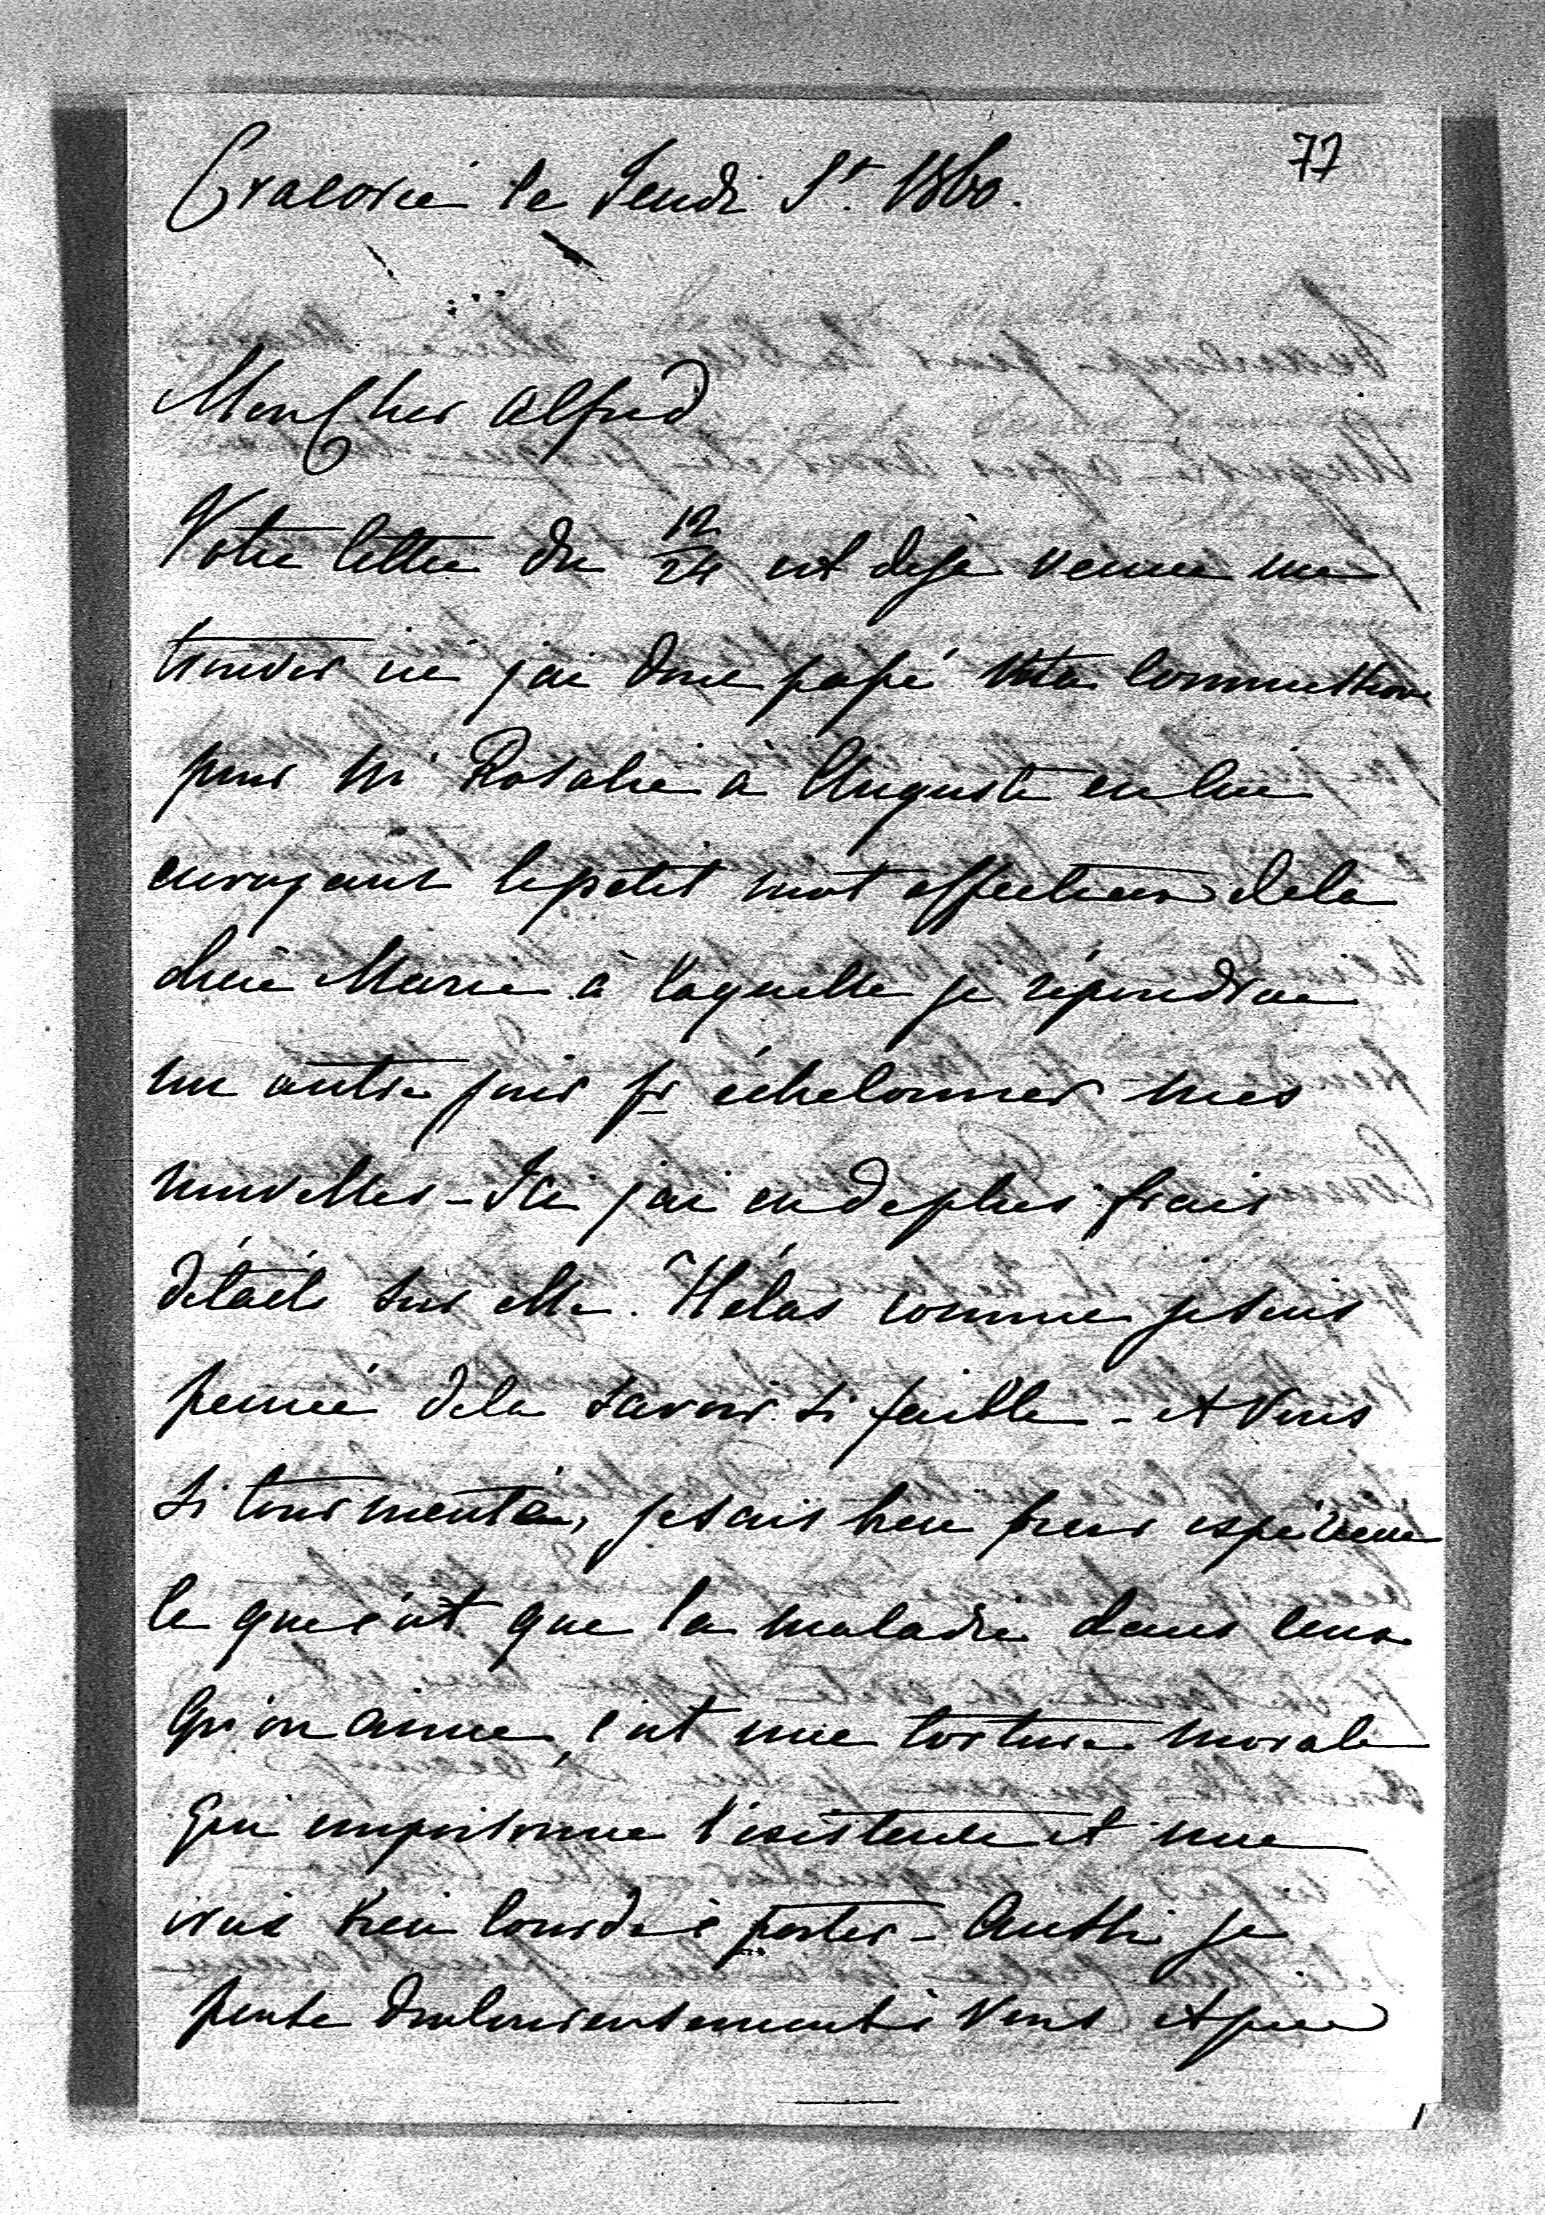 77
Cracovie le Jeudi St. 1860.
Mon Cher Alfred
Votre lettre du 12/24 est deja venue me
trouver ici j'ai donc passé vta commission
pour Mr Rosalie à Auguste en lui
envoyant le petit mot affectueux de la
chère Marie à laquelle je répondrai
un autre jour pr échelonner mes
nouvelles - Ici j'ai eu de plus frais
détails sur elle. Hélas comme je suis
peinée de la savoir si faible - et Vous
si tourmenté, je sais bien par expérience
ce que c'est que la maladie dans ceux
qu'on aime, c'est une torture morale
qui empoisonne l'existence et une
croix bien lourde à porter - Aussi je
pense douloureusement à Vous et prie